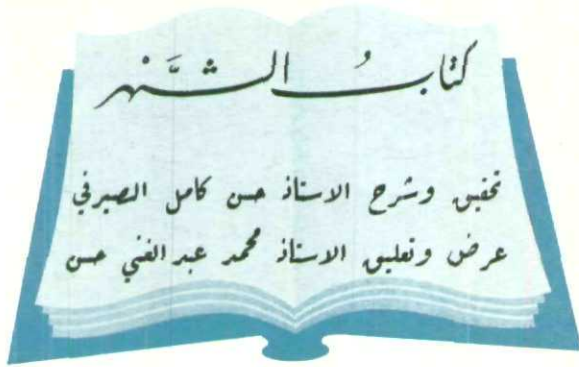 كتابُ الشَّهْر
تحقيق وشرح الاستاذ حسن كامل الصيرفي
عرض وتعليق الاستاذ محمد عبد الغني حسن